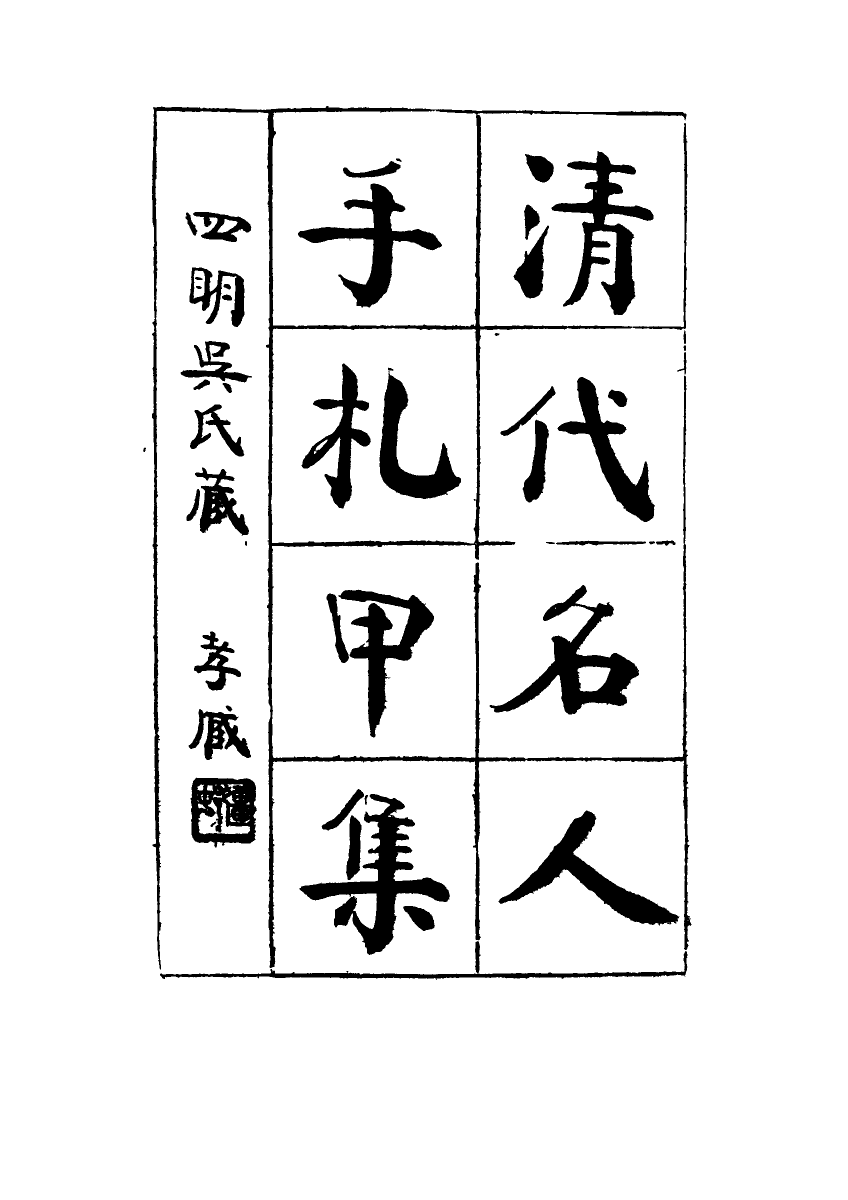 清代名人
手札甲集
四明吳氏藏 孝臧